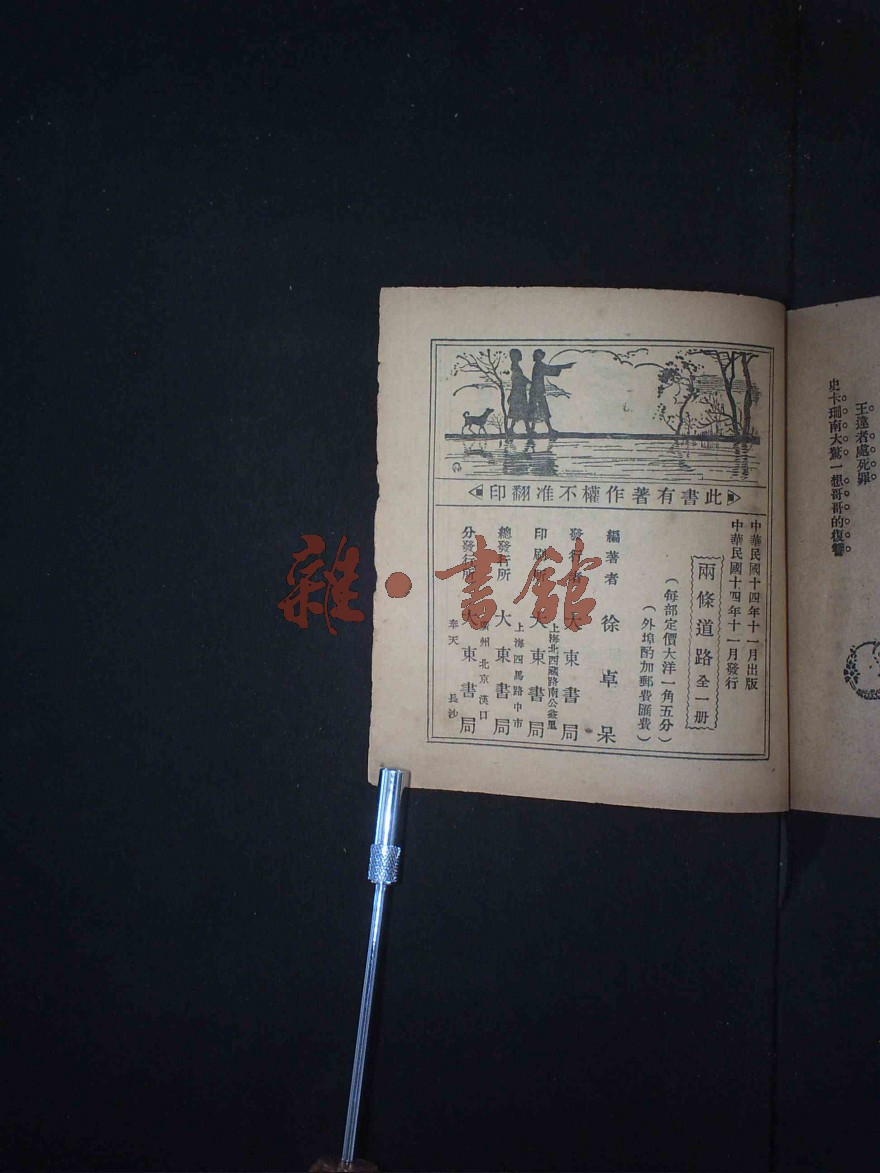 王達者處死罪。
史卡瑚南大驚一想哥哥的復讐。
此書有著作權不准翻印
中華民國十四年十一月出版
中華民國十四年十一月發行
兩條道路 全一册
（每部定價大洋一角五分）
（外埠酌加郵費匯費）
編著者 徐卓呆
發行者 大東書局
上海北西藏路南公益里
印刷所 大東書局
上海四馬路中市
總發行所 大東書局
廣州 北京 漢口
分發行所 大東書局
奉天 長沙
雜·書館